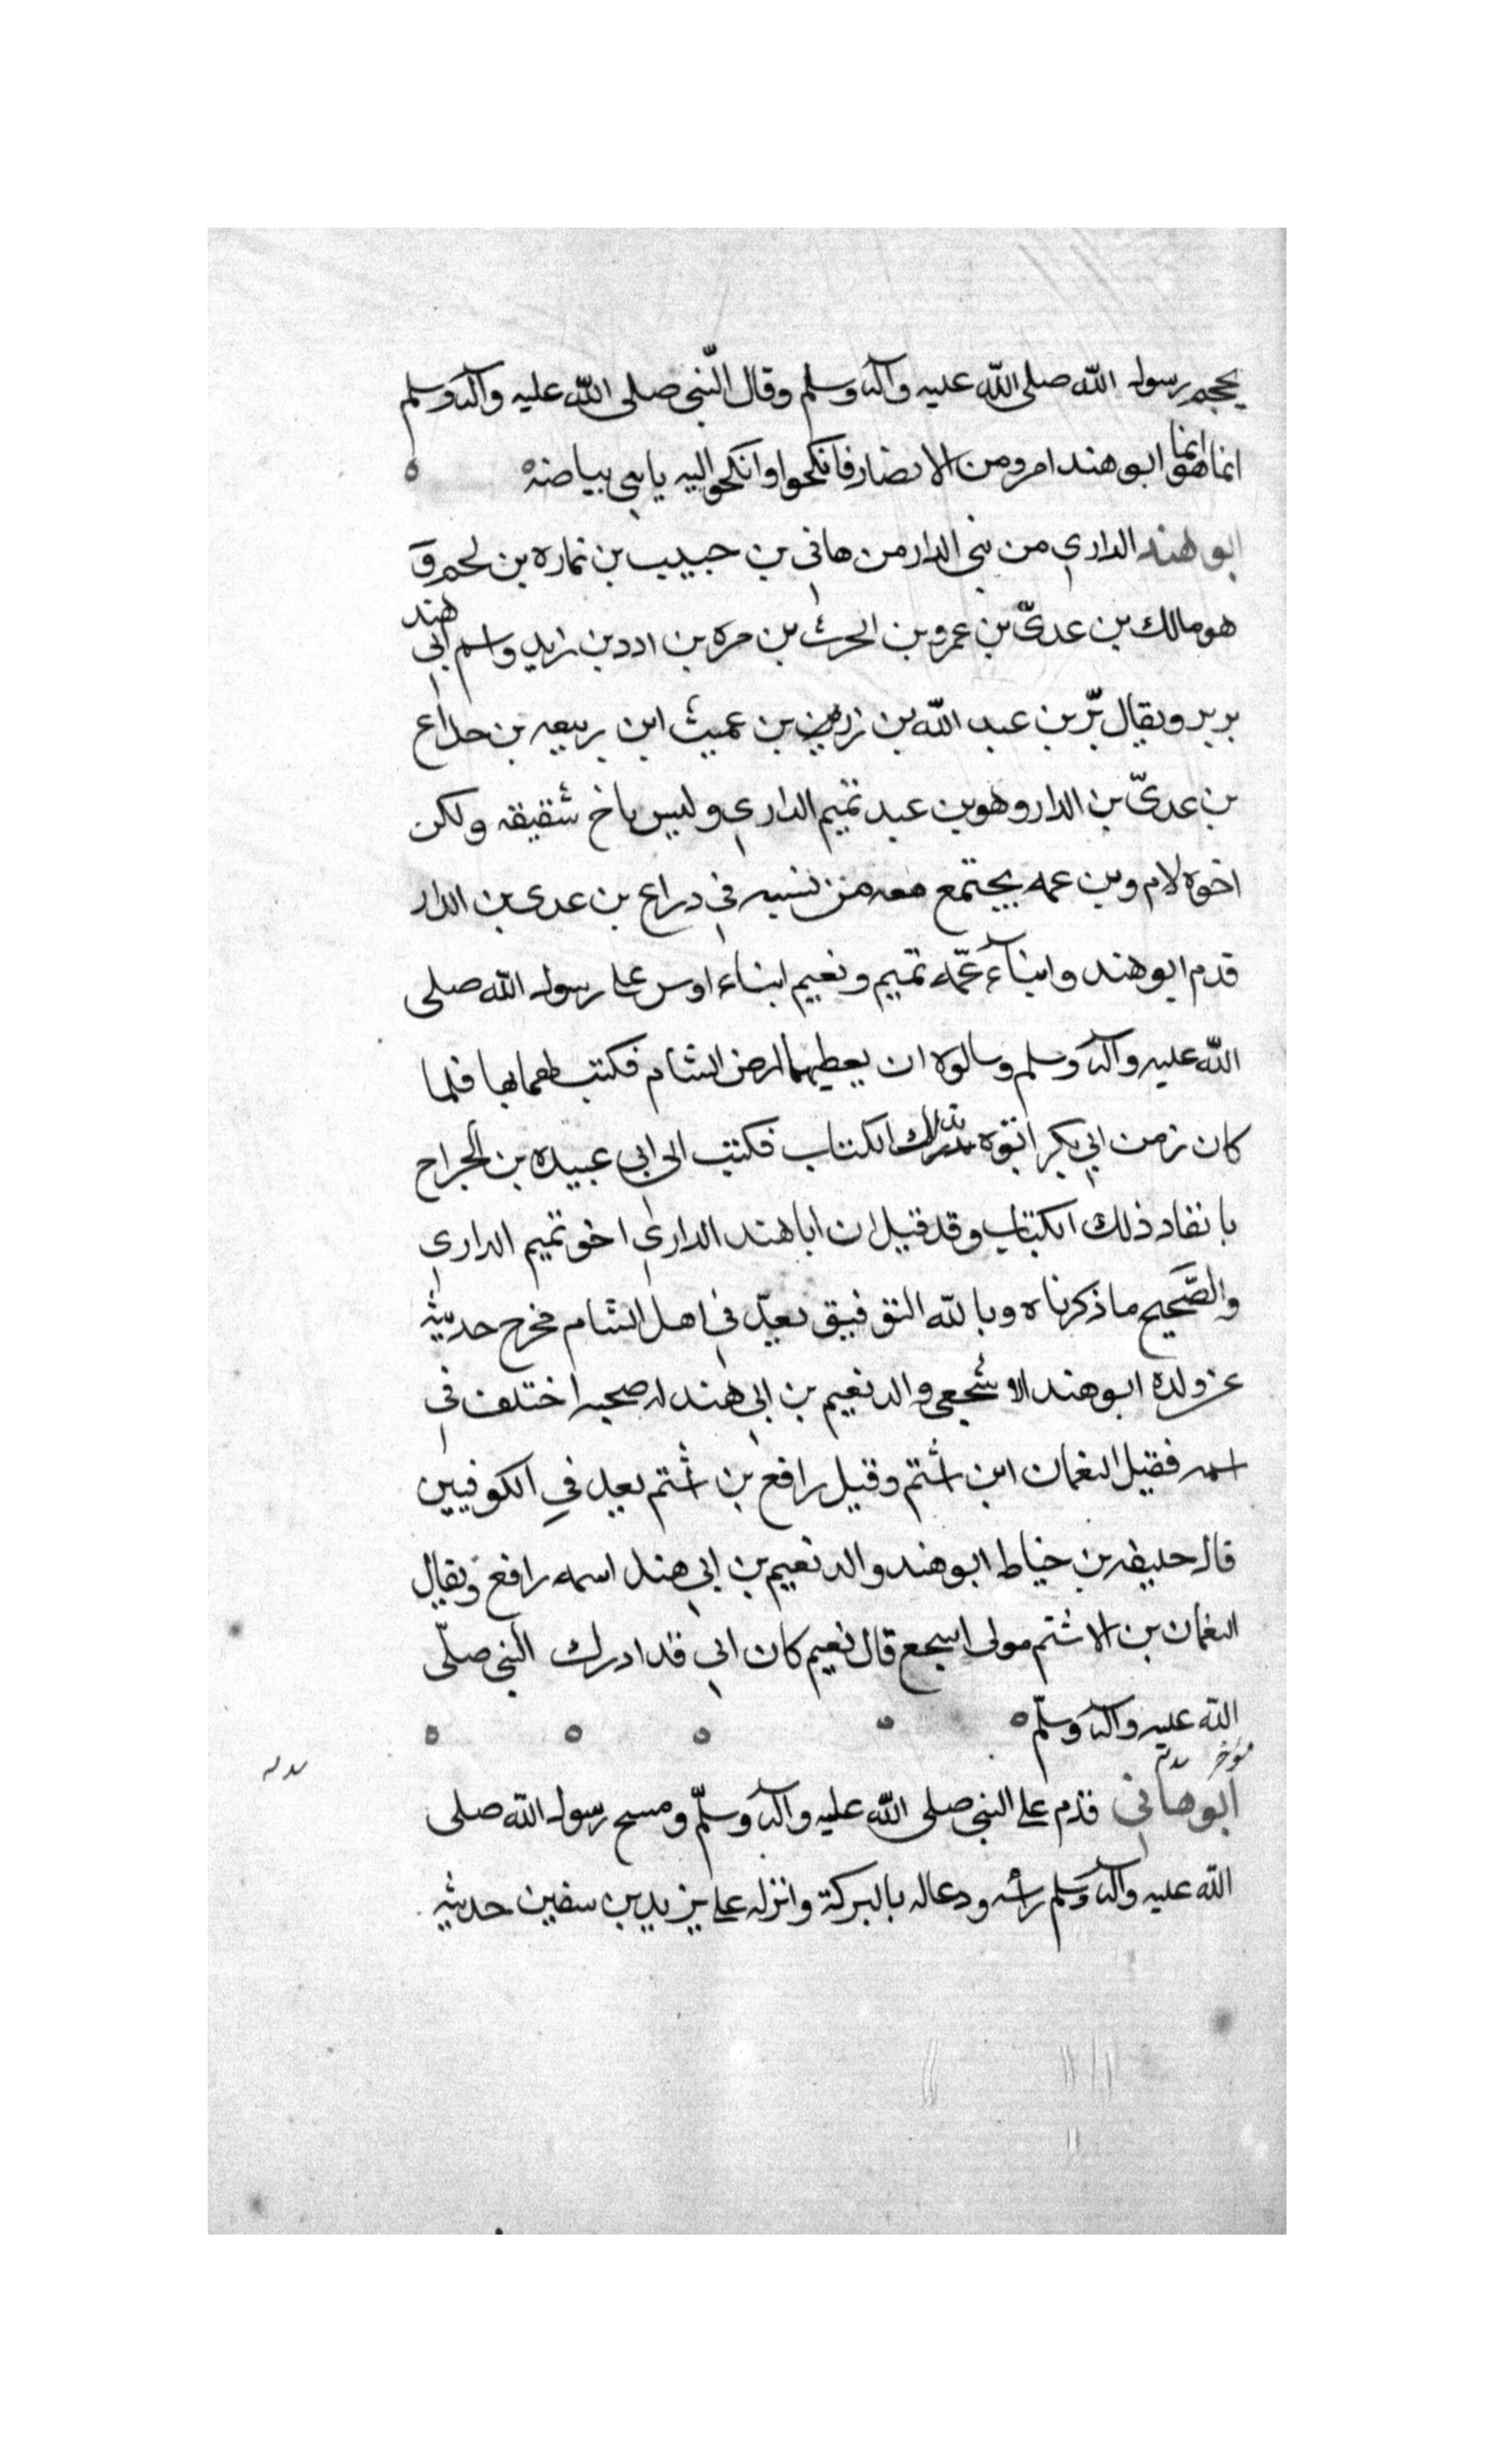 يحجم رسول الله صلى الله عليه وآله وسلم وقال النّبى صلى الله عليه وآله وسلم
انما هو انما ابو هند امرو من الانصار فانكحوا وانكحوا اليه يا بنى بياضه
ابو هند الدارى من بنى الدار من هانى بن حبيب بن نماره بن لحم و
هو مالك بن عدىّ بن عمرو بن الحرث بن مره بن ادد بن زيد واسم ابى هند
برير ويقال برّ بن عبد الله بن رزين بن عميث ابن ربيعه بن دراع
بن عدىّ بن الدار وهو بن عبد تميم الدارى وليس باخ شقيقه ولكن
اخوه لام وبن عمه يجتمع معه من نسبه فى دراع بن عدى بن الدار
قدم ابو هند وابناء عمّه تميم ونعيم ابناء اوس على رسول الله صلى
الله عليه وآله وسلم وسالوه ان يعطيهما ارض الشام فكتب لهما بها فلما
كان زمن ابى بكر اتوه بذلك الكتاب فكتب الى ابى عبيده بن الجراح
بانفاد ذلك الكتاب وقد قيل ان ابا هند الدارى اخو تميم الدارى
والصّحيح ما ذكرناه وبالله التوفيق يعدّ فى اهل الشام مخرج حديثه
عن ولده ابو هند الاشجعى والد نعيم بن ابى هند له صحبه اختلف فى
اسمه فقيل النعمان ابن اشتم وقيل رافع بن اشتم يعد في الكوفيين
قال خليفه بن خياط ابو هند والد نعيم بن ابى هند اسمه رافع ويقال
النعمان بن الاشتم مولى اسجع قال نعيم كان ابى قد ادرك النبى صلّى
الله عليه وآله وسلّم
ابو هانى قدم على النبى صلى الله عليه وآله وسلّم ومسح رسول الله صلى
الله عليه وآله وسلم راسه ودعا له بالبركة وانزله على يزيد بن سفين حديثه